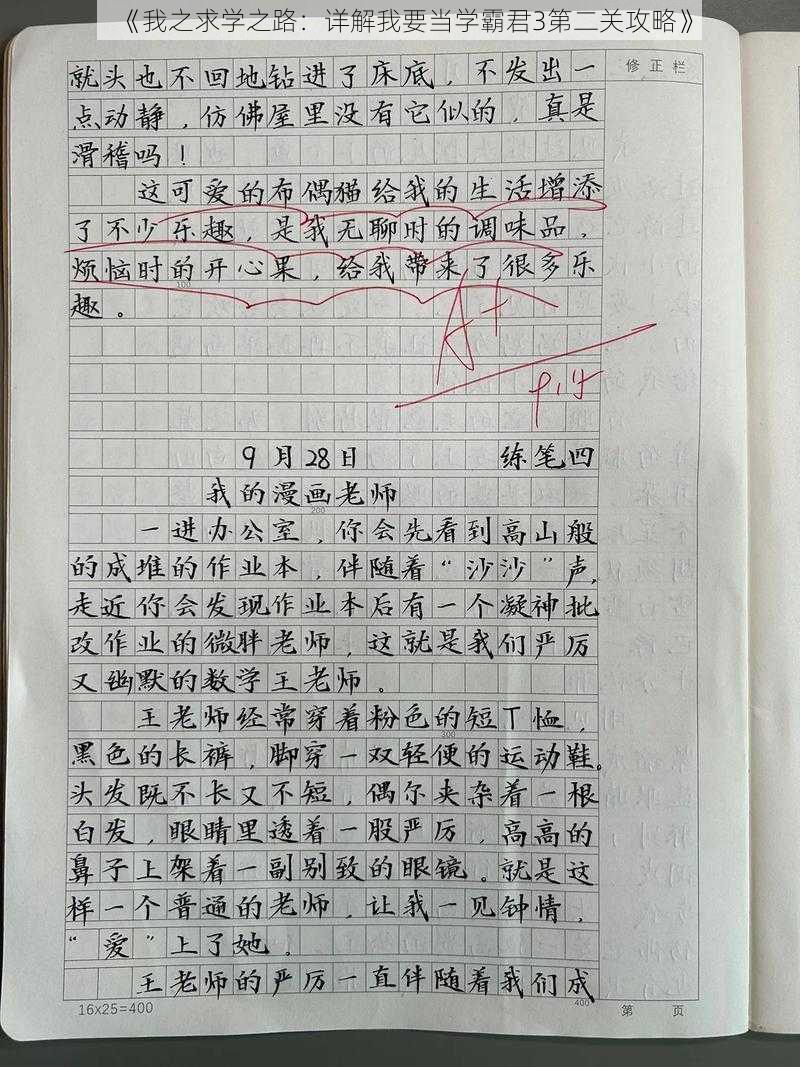 《我之求学之路：详解我要当学霸君3第二关攻略》
修正栏
就头也不回地钻进了床底，不发出一
点动静，仿佛屋里没有它似的，真是
滑稽吗！
这可爱的布偶猫给我的生活增添
了不少乐趣，是我无聊时的调味品，
烦恼时的开心果，给我带来了很多乐
100
趣。
A+
9月28日 练笔四
我的漫画老师
200
一进办公室，你会先看到高山般
的成堆的作业本，伴随着“沙沙”声，
走近你会发现作业本后有一个凝神批
改作业的微胖老师，这就是我们严厉
又幽默的数学王老师。
王老师经常穿着粉色的短T恤，
300
黑色的长裤，脚穿一双轻便的运动鞋。
头发既不长又不短，偶尔夹杂着一根
白发，眼睛里透着一股严厉，高高的
鼻子上架着一副别致的眼镜。就是这
样一个普通的老师，让我一见钟情，
“爱”上了她。
王老师的严厉一直伴随着我们成
400
16x25=400 第 页